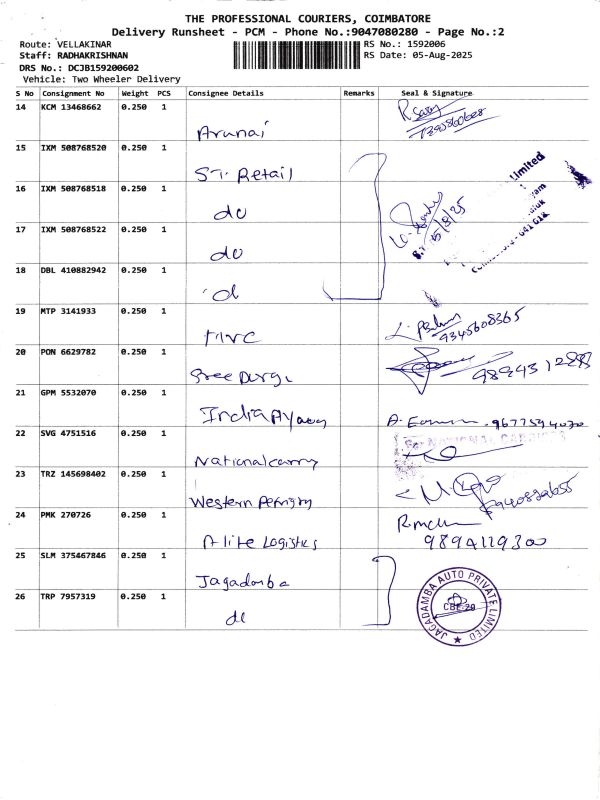 THE PROFESSIONAL COURIERS, COIMBATORE
Delivery Runsheet - PCM - Phone No.:9047080280 - Page No.:2
Route: VELLAKINAR
RS No.: 1592006
Staff: RADHAKRISHNAN
RS Date: 05-Aug-2025
DRS No.: DCJB159200602
Vehicle: Two Wheeler Delivery
S No Consignment No Weight PCS Consignee Details Remarks Seal & Signature
14 KCM 13468662 0.250 1
Arunai
15 IXM 508768520 0.250 1
ST. Retail
Limited
16 IXM 508768518 0.250 1
do
5/8/25
17 IXM 508768522 0.250 1
do
18 DBL 410882942 0.250 1
d
19 MTP 3141933 0.250 1
9345608365
20 PON 6629782 0.250 1
Sree Durga
21 GPM 5532070 0.250 1
India
22 SVG 4751516 0.250 1
For NATIONAL
National carry
23 TRZ 145698402 0.250 1
Western
24 PMK 270726 0.250 1
Alite Logistics
9894119300
25 SLM 375467846 0.250 1
Jagadamba
JAGADAMBA AUTO PRIVATE LIMITED
CBE-29
26 TRP 7957319 0.250 1
do